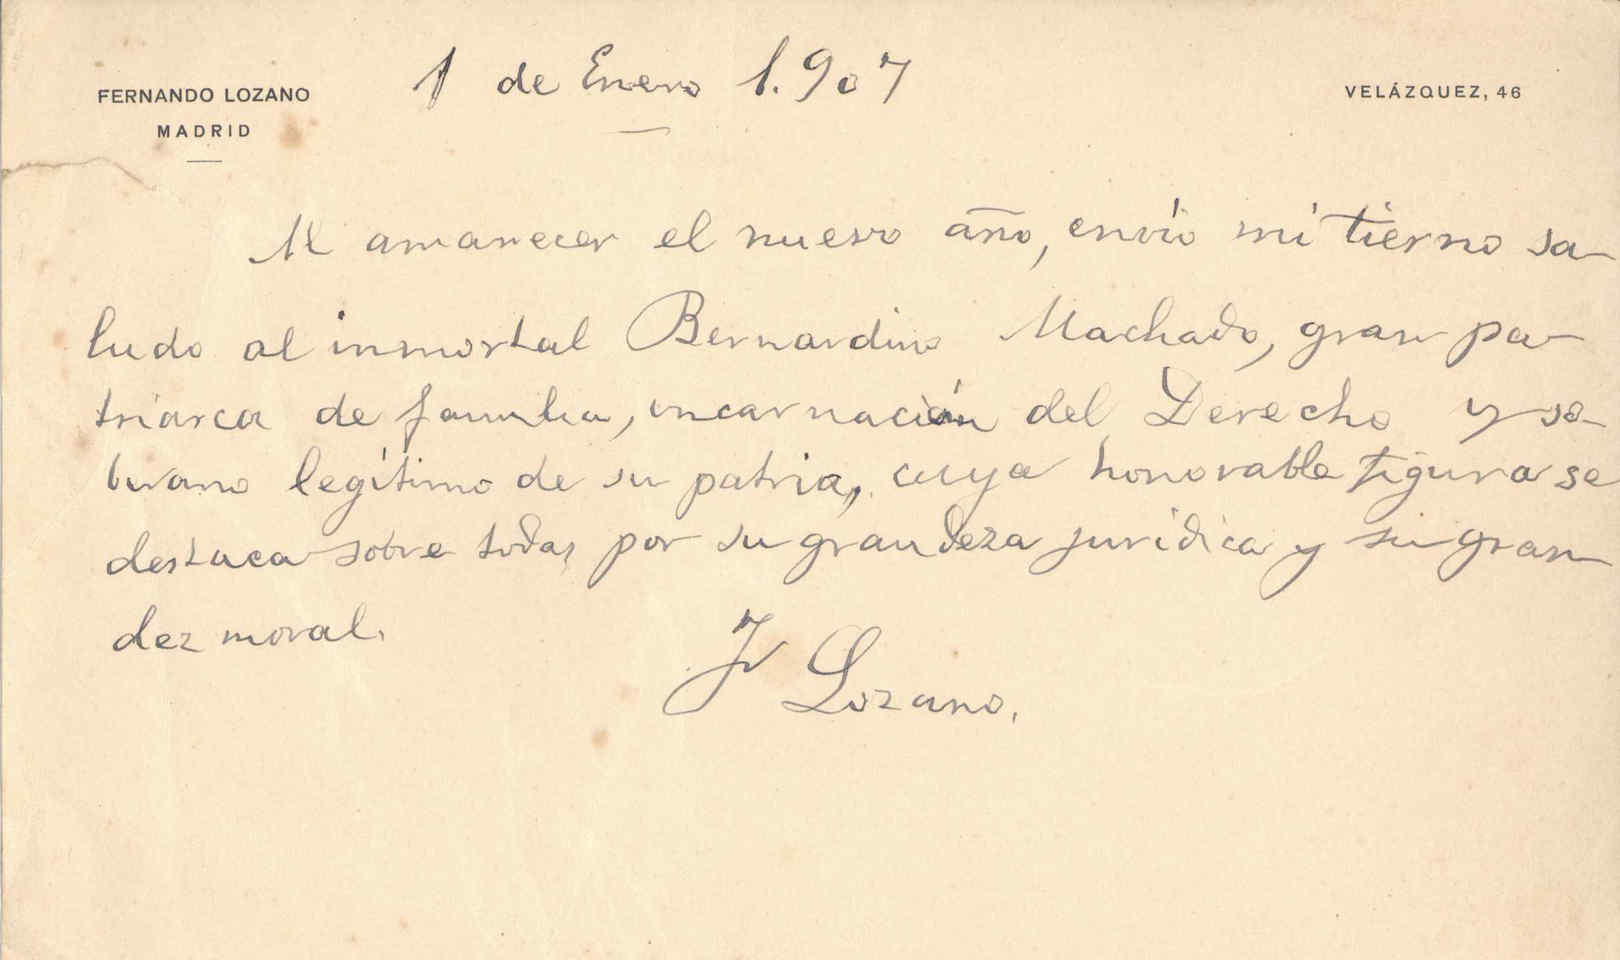 FERNANDO LOZANO
MADRID
1 de Enero 1.907
VELÁZQUEZ, 46
Al amanecer el nuevo año, envío mi tierno sa-
ludo al inmortal Bernardino Machado, gran pa-
triarca de familia, encarnación del Derecho y so-
berano legítimo de su patria, cuya honorable figura se
destaca sobre todas por su grandeza jurídica y su gran
dez moral.
F Lozano.